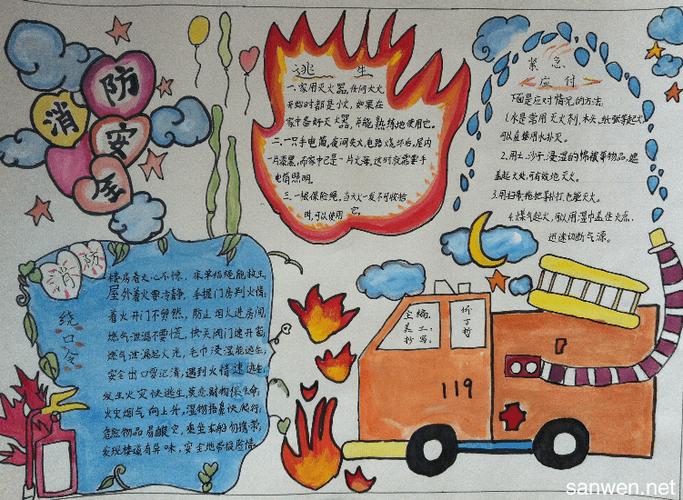 消防安全
逃生
一.家用灭火器,任何大火
开始时都是小火,如果在
家中备好灭火器,并能熟练地使用它。
二.一只手电筒,夜间失火,电路烧坏后,屋内
一片漆黑,而客中已是一片火海,这时就需要手
电筒照明。
三.一根保险绳,当大火一发不可收拾
时,可以使用它。
紧急
应付
下面是应对情况的方法:
1.水是常用灭火剂,木头,纸张等起火
可以直接用水扑灭。
2.用土,沙子,浸湿的棉被等物品,遮
盖起火处,可有效地灭火。
3.用扫帚,拖把等扑打,也能灭火。
4.煤气起火,可以用湿巾盖住火点,
迅速切断气源。
消防
绕口令
楼房着火心不惊,床单结绳能救生
屋外着火要冷静,手握门房判火情
着火开门不贸然,防止烟火进房间
燃气泄漏不要慌,快关阀门速开窗
燃气泄漏起火光,毛巾浸湿能逃生
安全出口要记清,遇到火情速逃
发生火灾快逃生,莫恋财物保生命
火灾烟气向上升,湿物捂鼻快爬行
危险物品易酿灾,乘坐车船勿携带
发现楼道有异味,安全地带
主编:
美工:
抄写:
119
sanwen.net